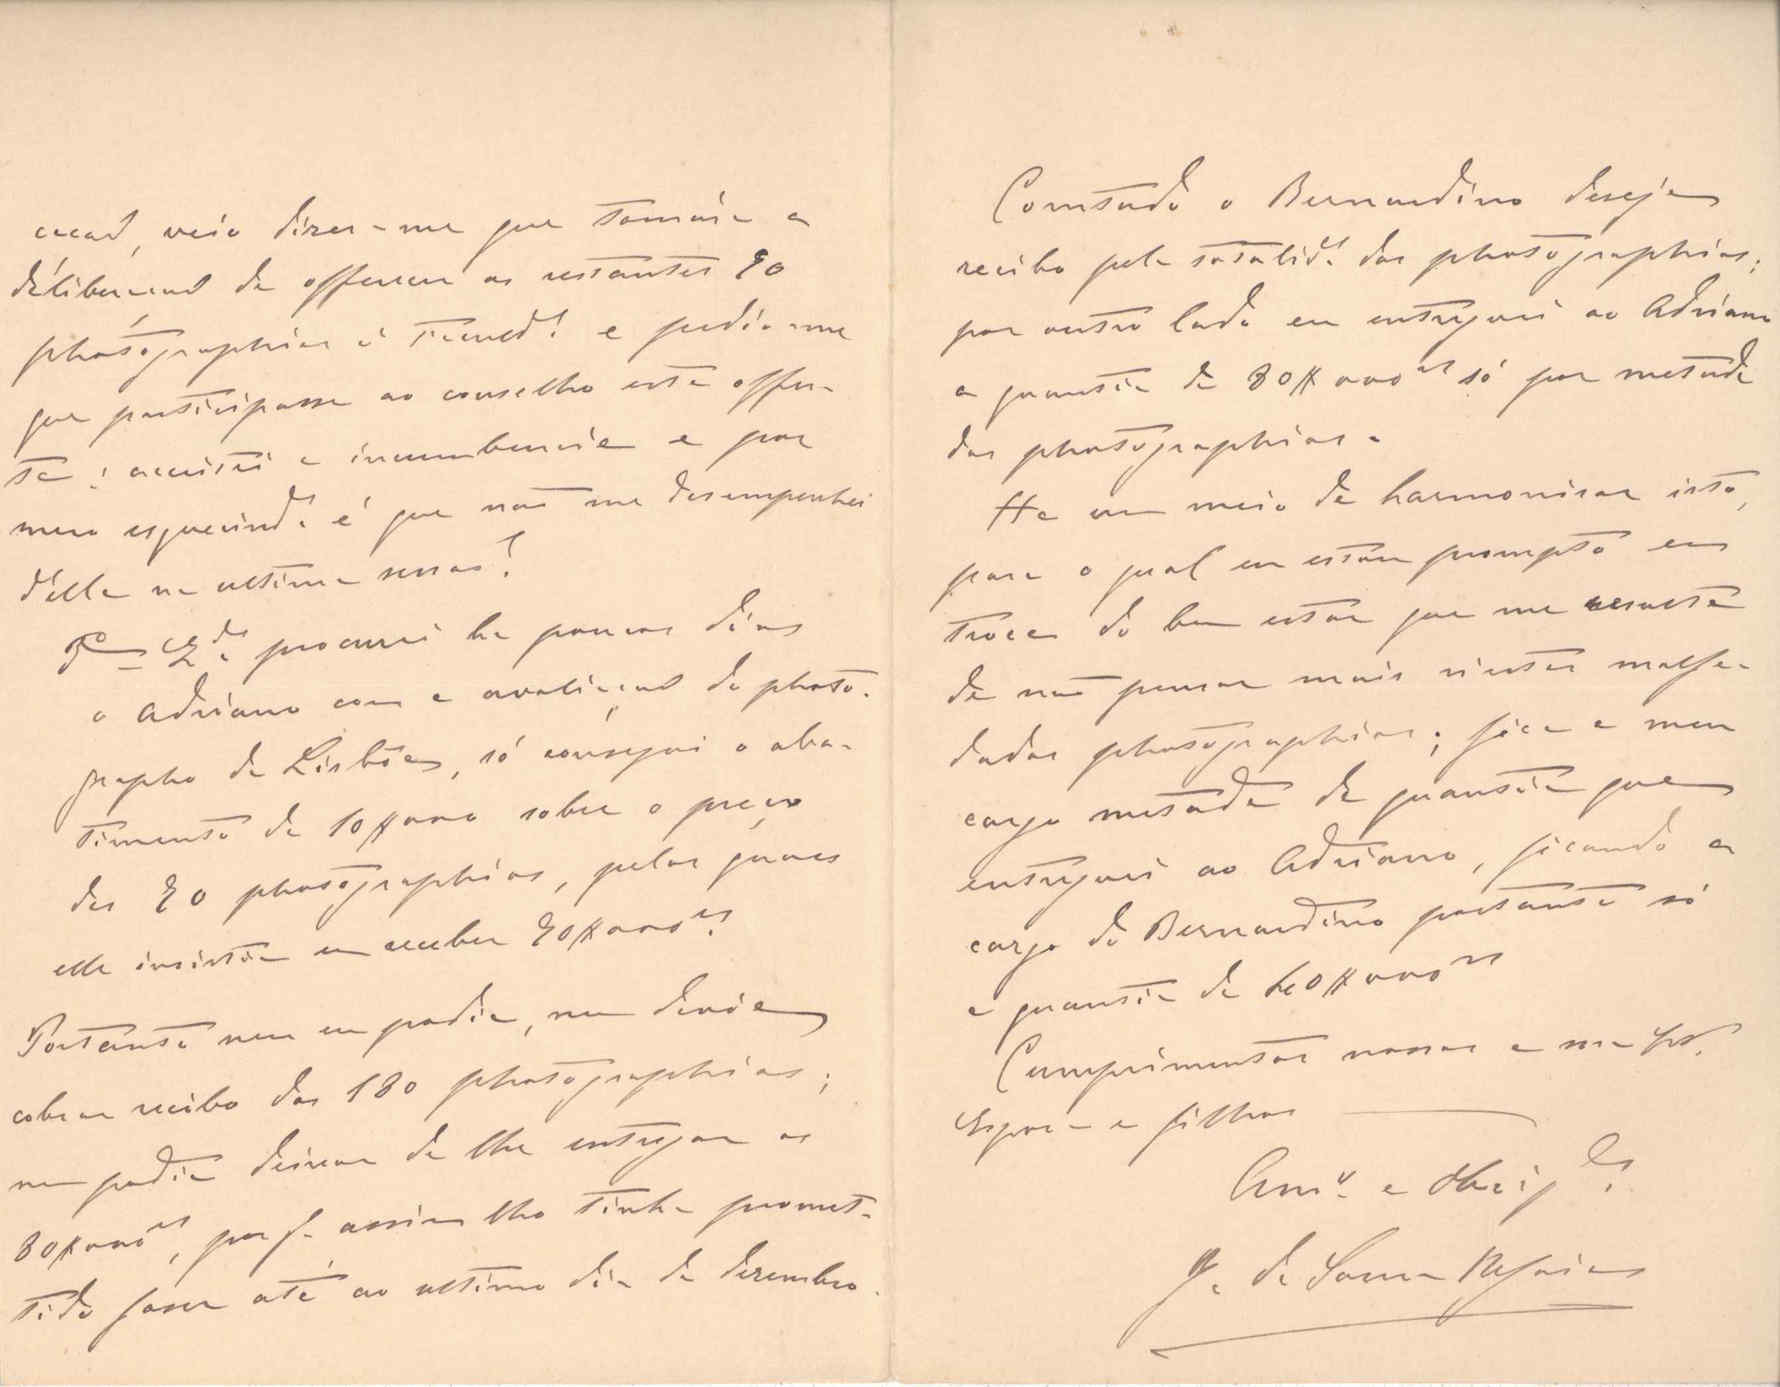 cacaõ, veio dizer-me que tomára a
deliberacaõ de offerecer as restantes 90
photographias á Facuد.ᵉ e pedio-me
que participasse ao conselho esta offer-
ta; acceitei a incumbencia e por
mero esquecimd.º é que naõ me desempenhei
d'ella na ultima sessaõ.
procurei ha poucos dias
o Adriano com a avaliaçaõ do photo-
grapho de Lisbôa, só consegui o aba-
timento de 10$000 sobre o preço
das 90 photographias, pelas quaes
elle insistia em receber 90$000ʳˢ.
Portanto nem eu podia, nem devia
cobrar recibo das 180 photographias;
nem podia deixar de lhe entregar os
80$000ʳˢ, por q. assim lho tinha promet-
tido fazer até ao ultimo dia de dezembro.
Comtudo o Bernardino deseja
recibo pela totalid.ᵉ das photographias;
por outro lado eu entreguei ao Adriano
a quantia de 80$000ʳˢ só por metade
das photographias.
Ha um meio de harmonisar isto,
para o qual eu estou prompto em
troca do bem estar que me resulta
de naõ pensar mais n'estas malfa-
dadas photographias; fica a meu
cargo metade da quantia que
entreguei ao Adriano, ficando a
cargo do Bernardino portanto só
a quantia de 40$000ʳˢ
Cumprimentos nossos a sua Ex.ᵐᵃ
Esposa e filhos
Am.º e Obrig.ᵈᵒ
J. de Sousa Refoios